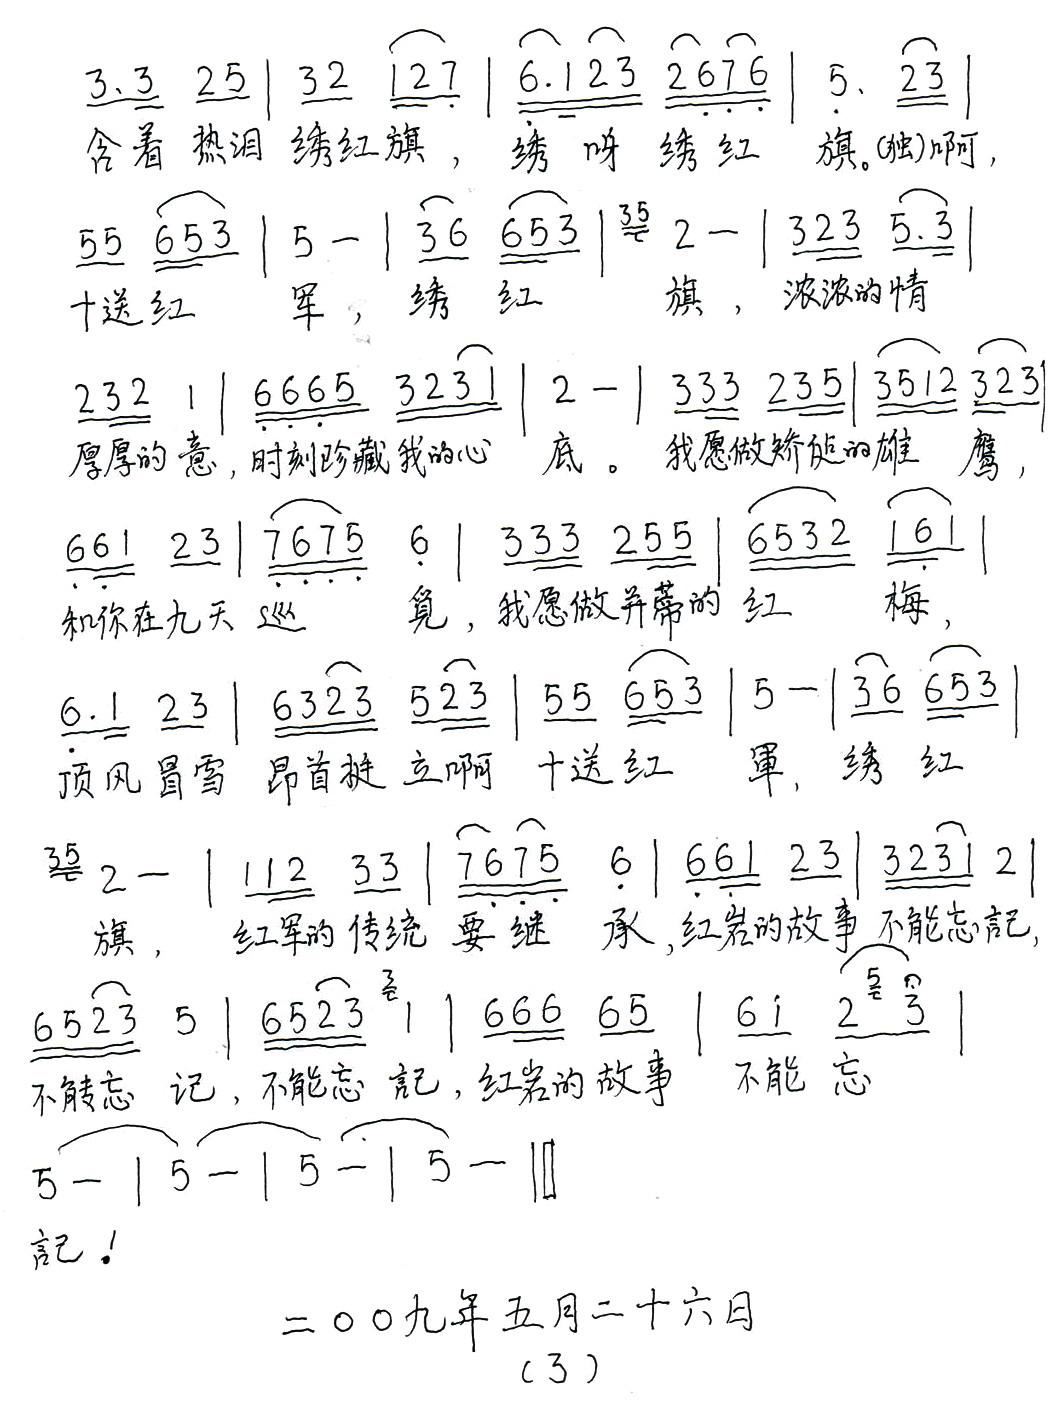 3.3 25 | 32 127 | 6.123 2676 | 5. 23 |
含着 热泪 绣红旗，绣 呀 绣红 旗。(独)啊，
55 653 | 5 — | 36 653 | 35 2 — | 323 5.3 |
十送红 军，绣 红 旗，浓浓的情
232 1 | 6665 3231 | 2 — | 333 235 | 3512 323 |
厚厚的 意，时刻珍藏 我的心 底。我愿做矫健的雄 鹰，
661 23 | 7675 6 | 333 255 | 6532 161 |
和你在九天 巡 觅，我愿做并蒂的 红 梅，
6.1 23 | 6323 523 | 55 653 | 5 — | 36 653 |
顶风冒雪 昂首挺 立啊 十送红 軍，绣 红
35 2 — | 112 33 | 7675 6 | 661 23 | 3231 2 |
旗，红军的 传统 要 继 承，红岩的故事 不能忘記，
6523 5 | 6523 2 1 | 666 65 | 6i 2 5 3 |
不能忘 记，不能忘 記，红岩的 故事 不能 忘
5 — | 5 — | 5 — | 5 — ‖
記！
二〇〇九年五月二十六日
(3)